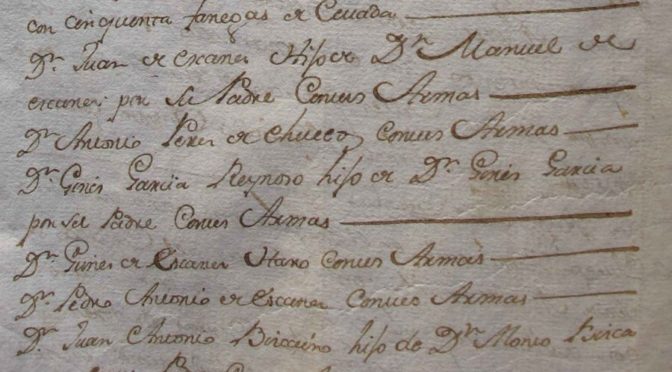 con cinquenta fanegas de Cevada
Dn. Juan de escaner Hijo de Dn. Manuel de
escaner por su Padre Con sus Armas
Dn. Antonio Perez de Chueco Con sus Armas
Dn. Gines Garcia Reynoso hijo de Dn. Gines Garcia
por su Padre Con sus Armas
Dn. Gines de Escaner Haro Con sus Armas
Dn. Pedro Antonio de escaner Con sus Armas
Dn. Juan Antonio hijo de Dn.